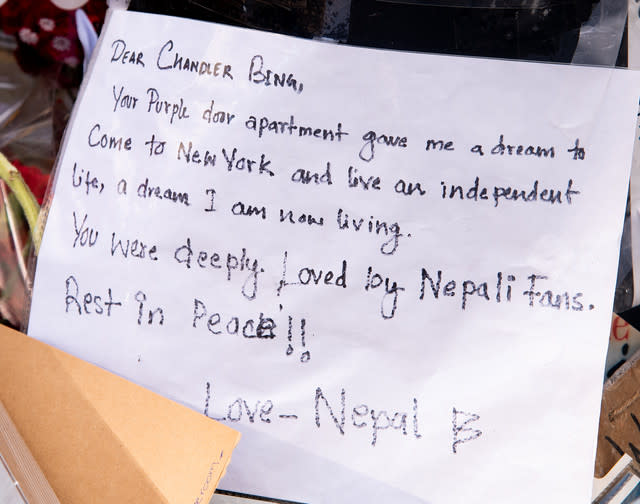 Dear Chandler Bing,
Your Purple door apartment gave me a dream to
Come to New York and live an independent
life, a dream I am now living.
You were deeply. Loved by Nepali Fans.
Rest in Peace!!
Love - Nepal